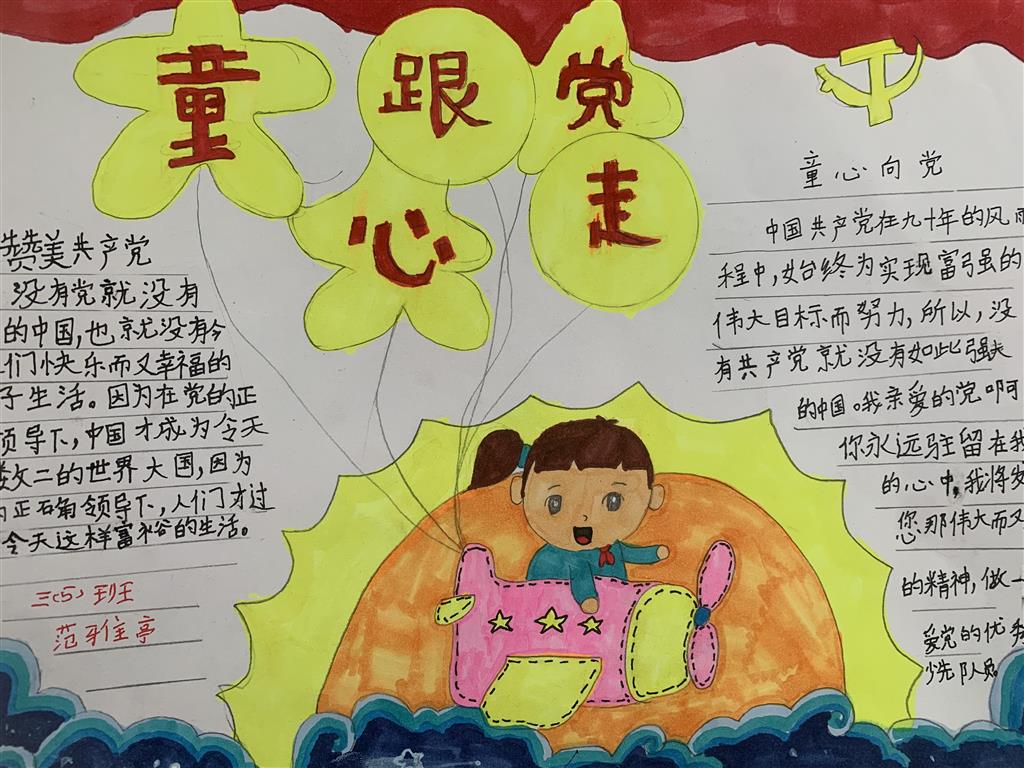 童心跟党走
赞美共产党
没有党就没有
的中国,也就没有今
们快乐而又幸福的
子生活。因为在党的正
领导下,中国才成为今天
数二的世界大国,因为
正确领导下,人们才过
今天这样富裕的生活。
三(5)班
范雅亭
童心向党
中国共产党在九十年的风雨
程中,始终为实现富强的
伟大目标而努力,所以,没
有共产党就没有如此强大
的中国。我亲爱的党啊
你永远驻留在我
的心中,我将发
您那伟大而又
的精神,做一
爱党的优秀
少先队员。